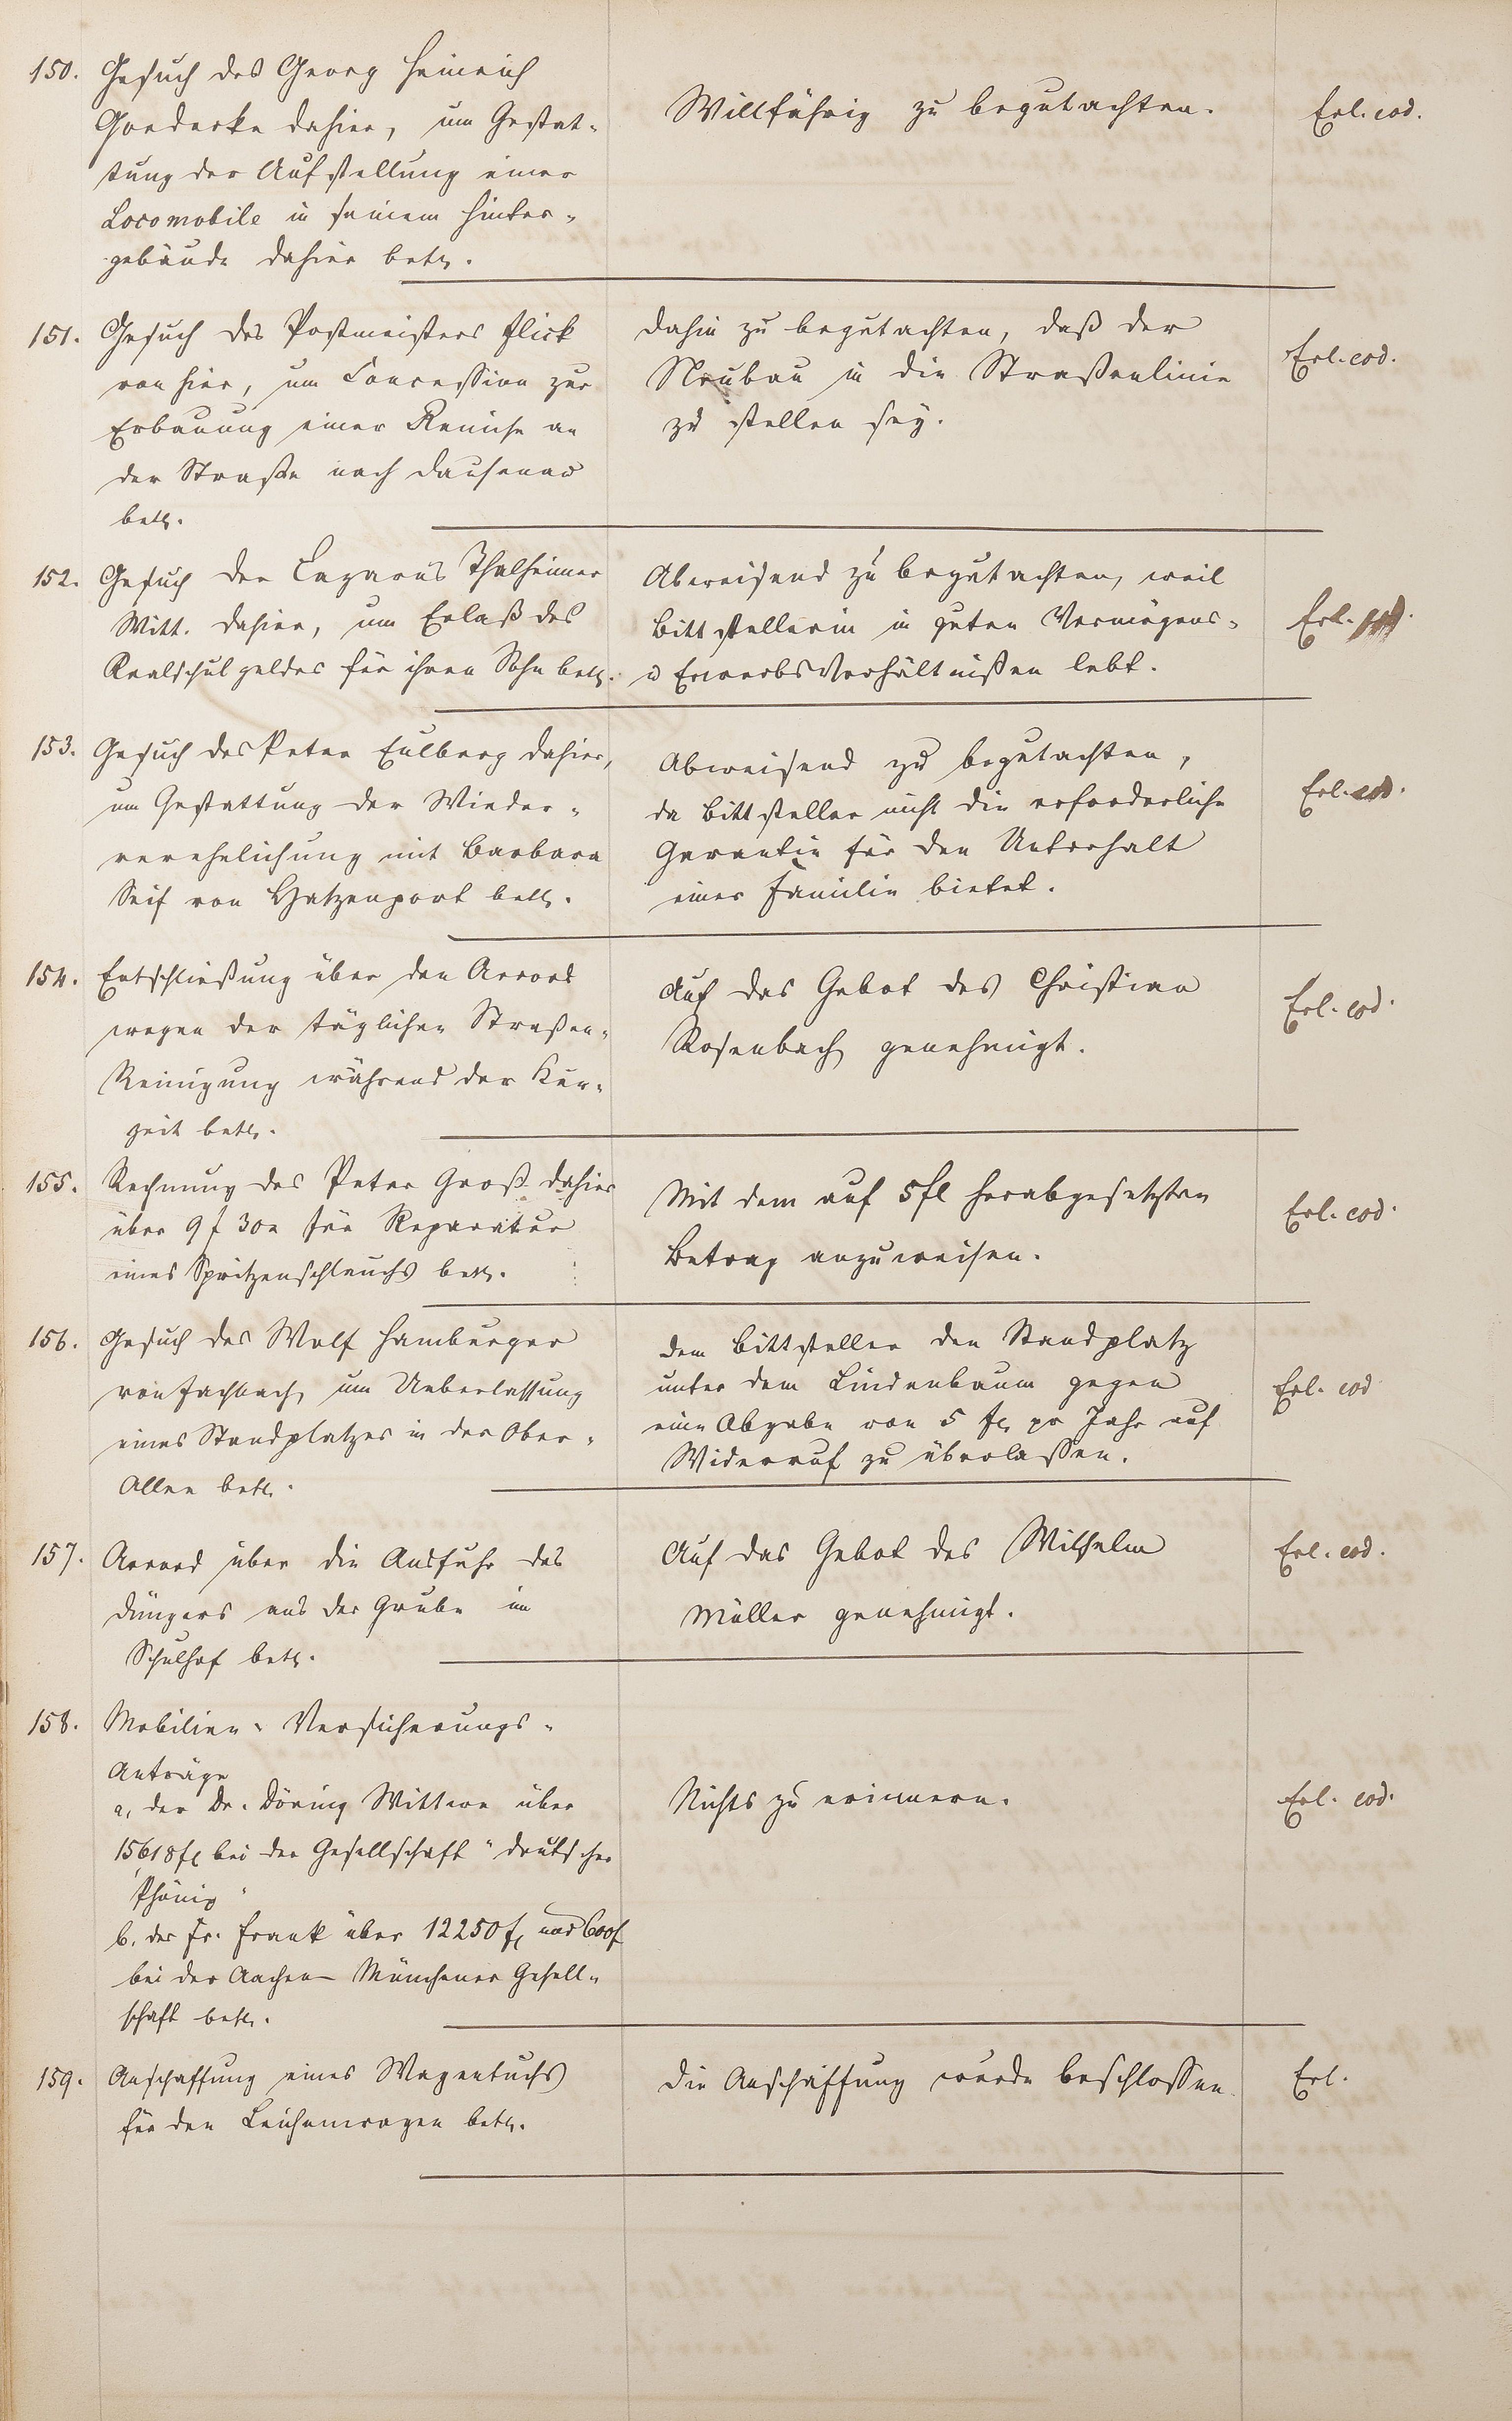 150. Gesuch des Georg Heinrich
Goedecke dahier, um Gestat-
tung der Aufstellung einer
Locomobile in seinem Hinter-
gebäude dahier betr.
Willfährig zu begutachten.
Erl. eod.
151. Gesuch des Postmeisters Flick
von hier, um Concession zur
Erbauung einer Remise an
der Straße nach Dausenau
betr.
Dahin zu begutachten, daß der
Neubau in die Straßenlinie
zu stellen sey.
Erl. eod.
152. Gesuch der Lazarus Thalheimer
Witt. dahier, um Erlaß des
Realschulgeldes für ihren Sohn betr.
Abweisend zu begutachten, weil
Bittstellerin in guten Vermögens-
u Erwerbsverhältnißen lebt.
Erl.
153. Gesuch des Peter Eulberg dahier,
um Gestattung der Wieder-
verehelichung mit Barbara
Seif von Hatzenport betr.
Abweisend zu begutachten,
da Bittsteller nicht die erforderliche
Garantie für den Unterhalt
einer Familie bietet.
Erl. eod.
154. Entschließung über den Accord
wegen der täglichen Straßen-
Reinigung während der Kur-
zeit betr.
Auf das Gebot des Christian
Rosenbach genehmigt.
Erl. eod.
155. Rechnung des Peter Groß dahier
über 9 f 30x für Reparatur
eines Spritzenschlauchs betr.
Mit dem auf 5fl herabgesetzten
Betrag anzuweisen.
Erl. eod.
156. Gesuch des Wolf Hamburger
von Fachbach, um Ueberlassung
eines Standplatzes in der Ober-
Allee betr.
Dem Bittsteller den Standplatz
unter dem Lindenbaum gegen
eine Abgabe von 5 fl pr Jahr auf
Widerruf zu überlassen.
Erl. eod
157. Accord über die Ausfuhr des
Düngers aus der Grube im
Schulhof betr.
Auf das Gebot des Wilhelm
Müller genehmigt.
Erl. eod.
158. Mobilien-Versicherungs-
Anträge
a, der Dr. Döring Wittwe über
15618 fl bei der Gesellschaft "Deutscher
Phönix"
b. der Fr. Frank über 12250 fl und 600 f
bei der Aachen-Münchener Gesell-
schaft betr.
Nichts zu erinnern.
Erl. eod.
159. Anschaffung eines Wagentuchs
für den Leichenwagen betr.
Die Anschaffung wurde beschlossen.
Erl.